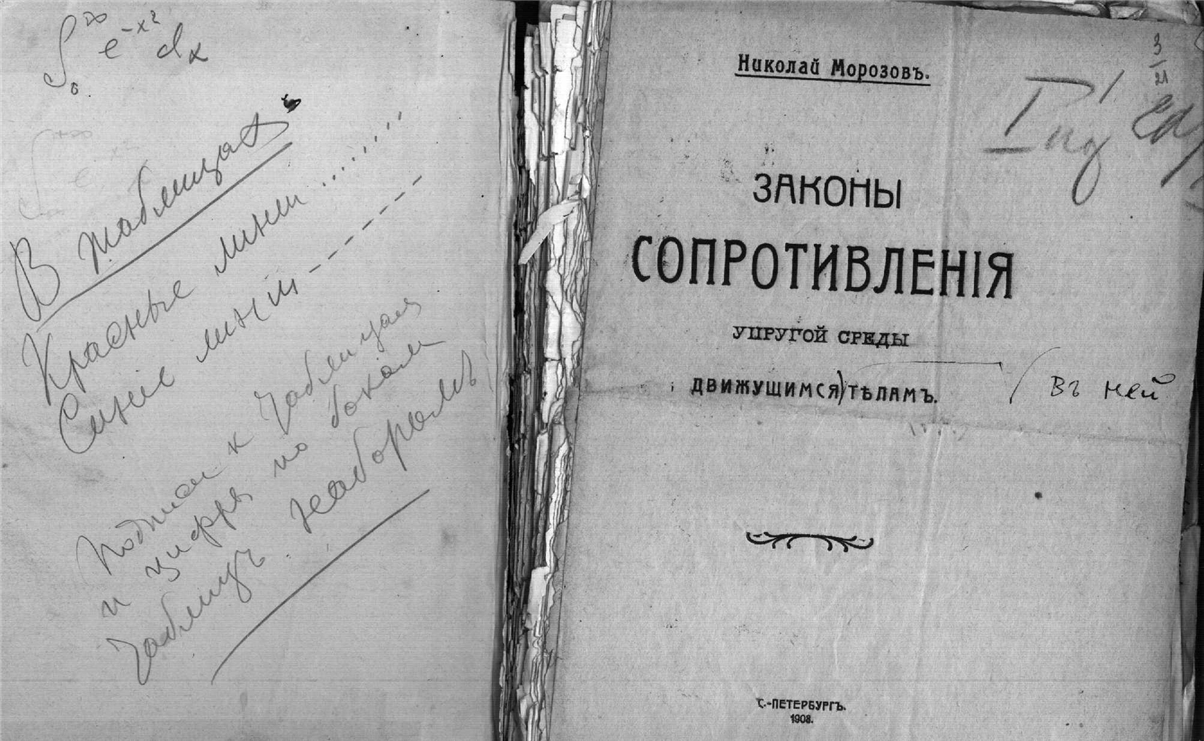 ∫₀^∞ e^{-x²} dx
В таблицах
Красные линии .........
Синіе линіи - - - - - - -
Подписи к таблицам
и цифры по бокам
таблицъ. наборомъ
Николай Морозовъ.
3/21
ЗАКОНЫ
СОПРОТИВЛЕНІЯ
УПРУГОЙ СРЕДЫ
ДВИЖУЩИМСЯ) ТѢЛАМЪ.
въ ней
С.-ПЕТЕРБУРГЪ.
1908.